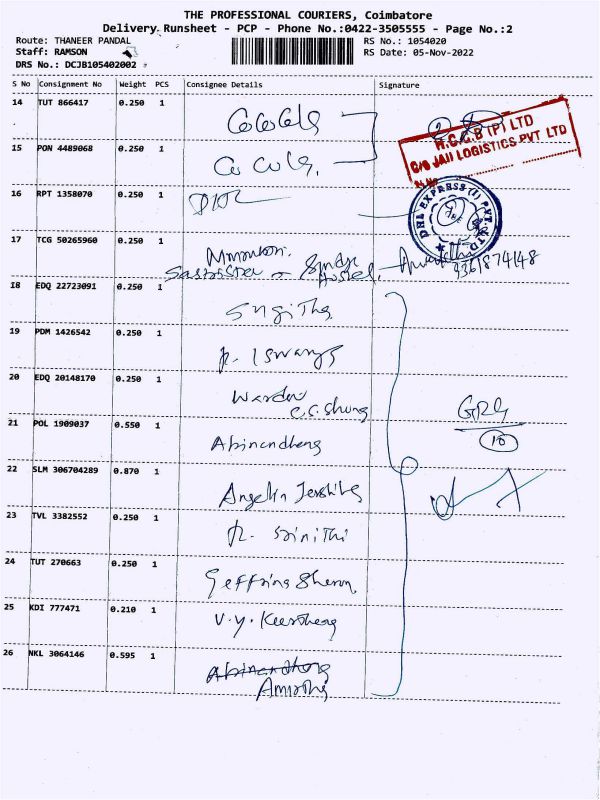 THE PROFESSIONAL COURIERS, Coimbatore
Delivery Runsheet - PCP - Phone No.:0422-3505555 - Page No.:2
Route: THANEER PANDAL
RS No.: 1054020
Staff: RAMSON
RS Date: 05-Nov-2022
DRS No.: DCJB105402002
S No Consignment No Weight PCS Consignee Details Signature
14 TUT 866417 0.250 1
H.C.C.B (P) LTD
C/o JAII LOGISTICS PVT LTD
15 PON 4489068 0.250 1
16 RPT 1358070 0.250 1
DHL EXPRESS (I) PVT. LTD
17 TCG 50265960 0.250 1
9361874148
18 EDQ 22723091 0.250 1 Sugitha
19 PDM 1426542 0.250 1
20 EDQ 20148170 0.250 1 Warden
GRG
21 POL 1909037 0.550 1 Abinandhana
18
22 SLM 306704289 0.870 1 Angelin
23 TVL 3382552 0.250 1 R. Srinithi
24 TUT 270663 0.250 1
25 KDI 777471 0.210 1 V.Y. Keerthana
26 NKL 3064146 0.595 1